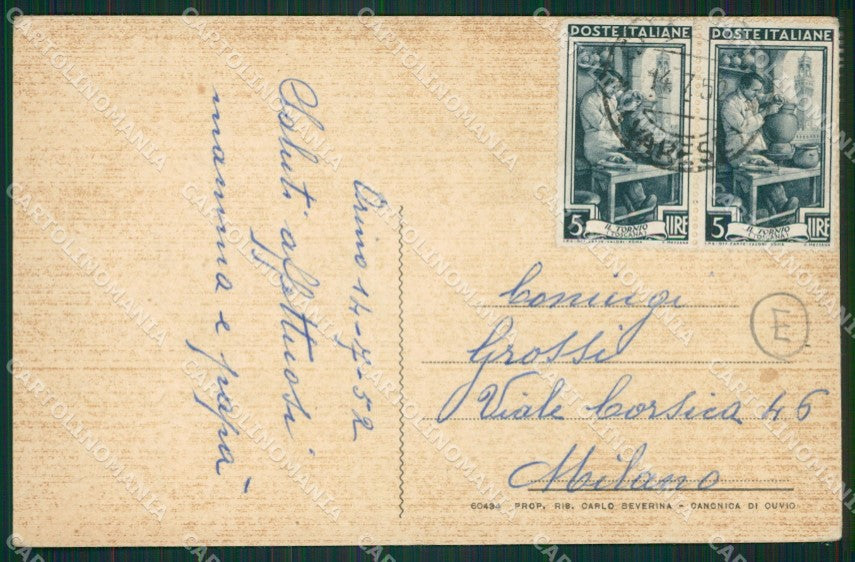 POSTE ITALIANE
5 LIRE
IL TORNIO
(TOSCANA)
POSTE ITALIANE
5 LIRE
IL TORNIO
(TOSCANA)
14.7.5
VARESE
Orino 14-7-52
Saluti affettuosi
mamma e papà
E
Coniugi
Grossi
Viale Corsica 46
Milano
60434 PROP. RIS. CARLO BEVERINA - CANONICA DI CUVIO
CARTOLINOMANIA